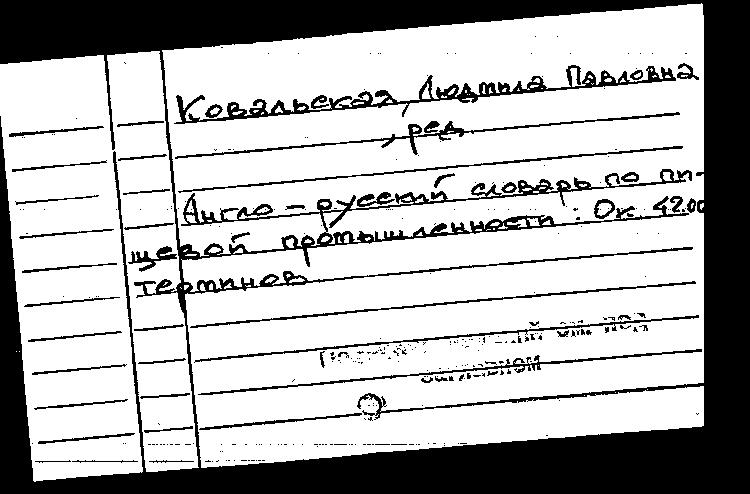 Ковальская, Людмила Павловна
, ред.
Англо-русский словарь по пи-
щевой промышленности: Ок. 42.00
терминов
см. под
заглавием